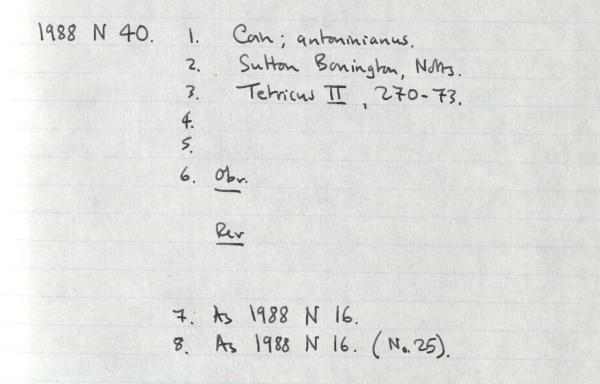 1988 N 40. 1. Coin; antoninianus.
2. Sutton Bonington, Notts.
3. Tetricus II, 270-73.
4.
5.
6. Obv.
Rev
7. As 1988 N 16.
8. As 1988 N 16. (No. 25).